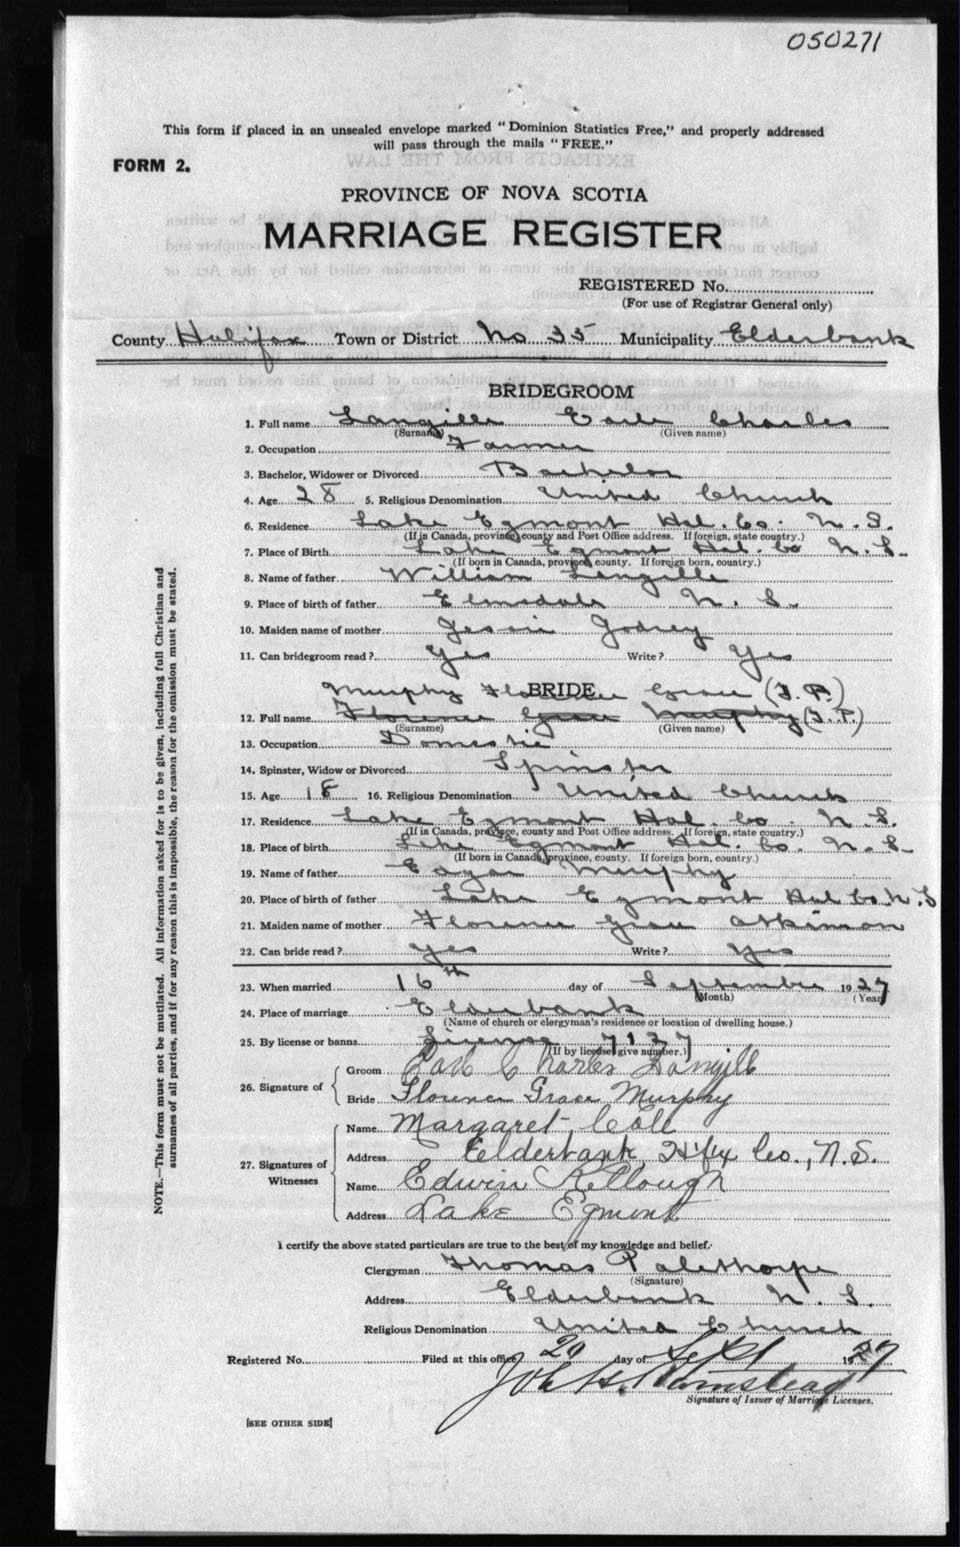 050271
This form if placed in an unsealed envelope marked "Dominion Statistics Free," and properly addressed
will pass through the mails "FREE."
FORM 2.
PROVINCE OF NOVA SCOTIA
MARRIAGE REGISTER
REGISTERED No.
(For use of Registrar General only)
County Halifax Town or District No 35 Municipality Elderbank
BRIDEGROOM
1. Full name Langille Earle Charles
(Surname) (Given name)
2. Occupation Farmer
3. Bachelor, Widower or Divorced Bachelor
4. Age 28 5. Religious Denomination United Church
6. Residence Lake Egmont Hal. Co. N. S.
(If in Canada, province, county and Post Office address. If foreign, state country.)
7. Place of Birth Lake Egmont Hal. Co N. S.
(If born in Canada, province, county. If foreign born, country.)
8. Name of father William Langille
9. Place of birth of father Elmsdale N. S.
10. Maiden name of mother Jessie
11. Can bridegroom read? Yes Write? Yes
BRIDE
Murphy Florence Grace (T. P.)
12. Full name Florence Grace Murphy (T. P.)
(Surname) (Given name)
13. Occupation Domestic
14. Spinster, Widow or Divorced Spinster
15. Age 18 16. Religious Denomination United Church
17. Residence Lake Egmont Hal. Co. N. S.
(If in Canada, province, county and Post Office address. If foreign, state country.)
18. Place of birth Lake Egmont Hal. Co. N. S.
(If born in Canada, province, county. If foreign born, country.)
19. Name of father Edgar Murphy
20. Place of birth of father Lake Egmont Hal Co N. S
21. Maiden name of mother Florence Grace Atkinson
22. Can bride read? Yes Write? Yes
23. When married 16th day of September 1927
(Month) (Year)
24. Place of marriage Elderbank
(Name of church or clergyman's residence or location of dwelling house.)
25. By license or banns License 7137
(If by license, give number.)
26. Signature of
Groom Earle Charles Langille
Bride Florence Grace Murphy
27. Signatures of Witnesses
Name Margaret Cole
Address Elderbank, Hfx Co., N. S.
Name Edwin Killough
Address Lake Egmont
I certify the above stated particulars are true to the best of my knowledge and belief.
Clergyman Thomas Palethorpe
(Signature)
Address Elderbank N. S.
Religious Denomination United Church
Registered No. Filed at this office 20 day of Sept 1927
Signature of Issuer of Marriage Licenses.
[SEE OTHER SIDE]
NOTE.—This form must not be mutilated. All information asked for is to be given, including full Christian and
surnames of all parties, and if for any reason this is impossible, the reason for the omission must be stated.